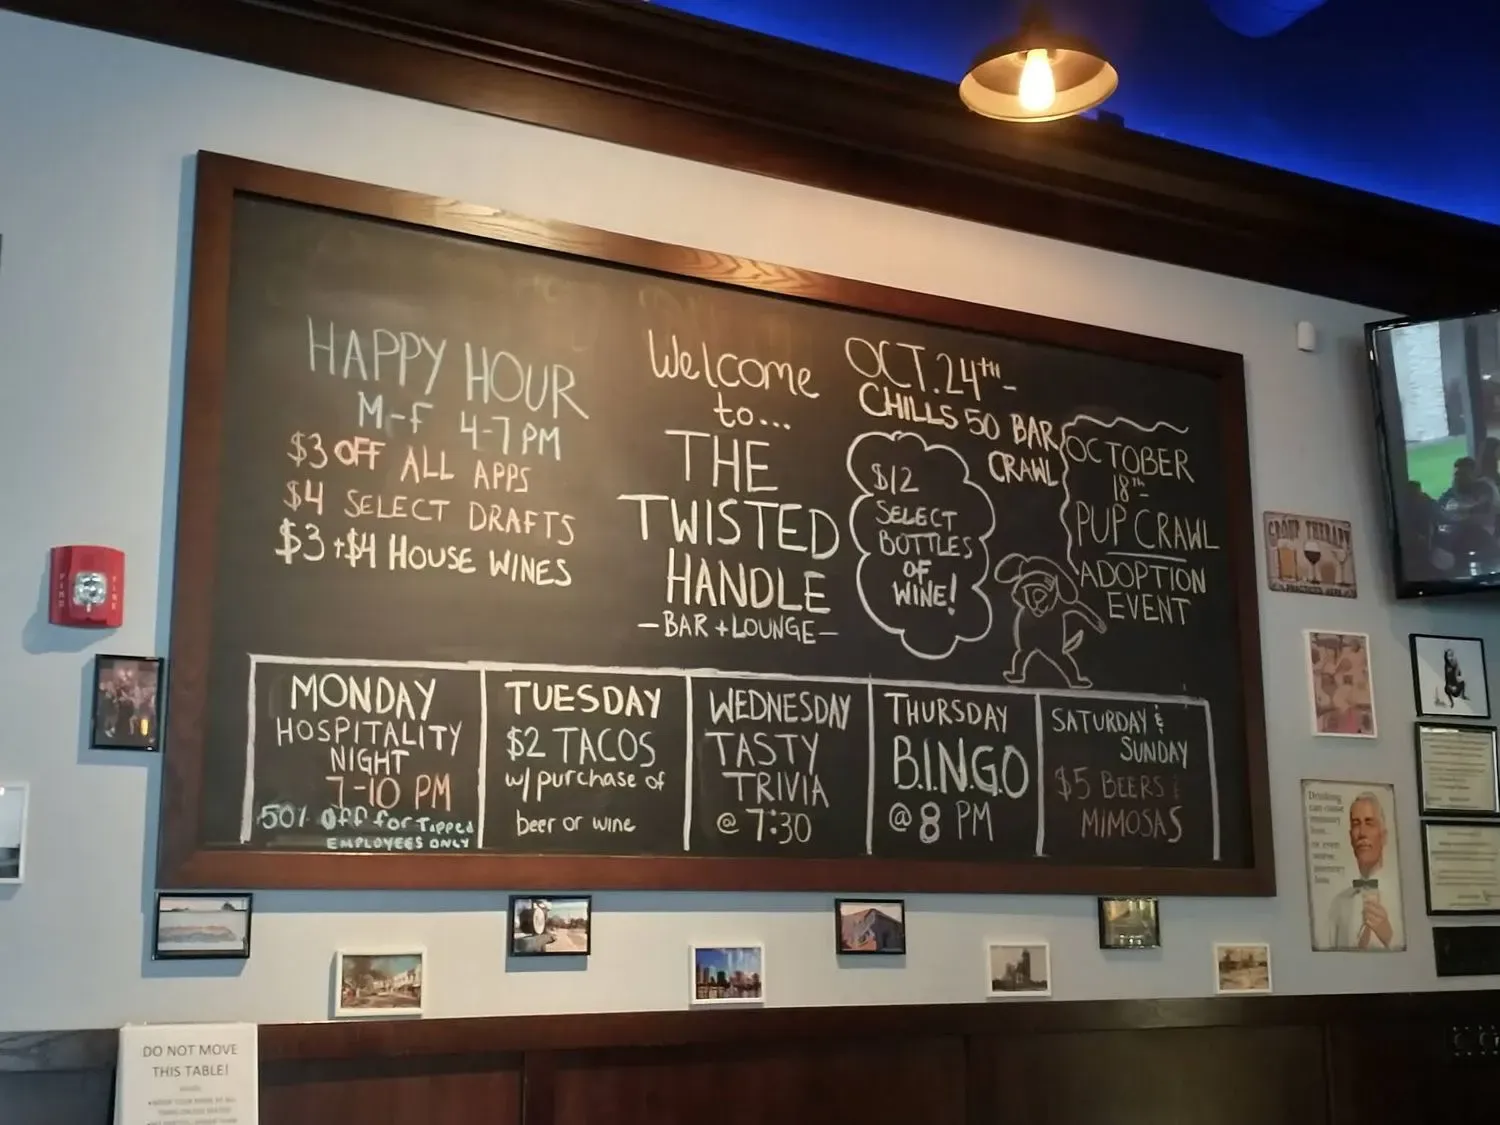 HAPPY HOUR
M-F 4-7 PM
$3 OFF ALL APPS
$4 SELECT DRAFTS
$3 + $4 HOUSE WINES
Welcome
to...
THE
TWISTED
HANDLE
- BAR + LOUNGE -
OCT. 24TH -
CHILLS 50 BAR
CRAWL
$12
SELECT
BOTTLES
OF
WINE!
OCTOBER
18TH -
PUP CRAWL
ADOPTION
EVENT
MONDAY
HOSPITALITY
NIGHT
7-10 PM
50% Off for Tapped
EMPLOYEES ONLY
TUESDAY
$2 TACOS
w/ purchase of
beer or wine
WEDNESDAY
TASTY
TRIVIA
@ 7:30
THURSDAY
B.I.N.G.O
@ 8 PM
SATURDAY &
SUNDAY
$5 BEERS &
MIMOSAS
FIRE
FIRE
GROUP THERAPY
PRACTICED HERE
Drinking
can cause
memory
loss...
or even
worse,
memory
loss.
DO NOT MOVE
THIS TABLE!